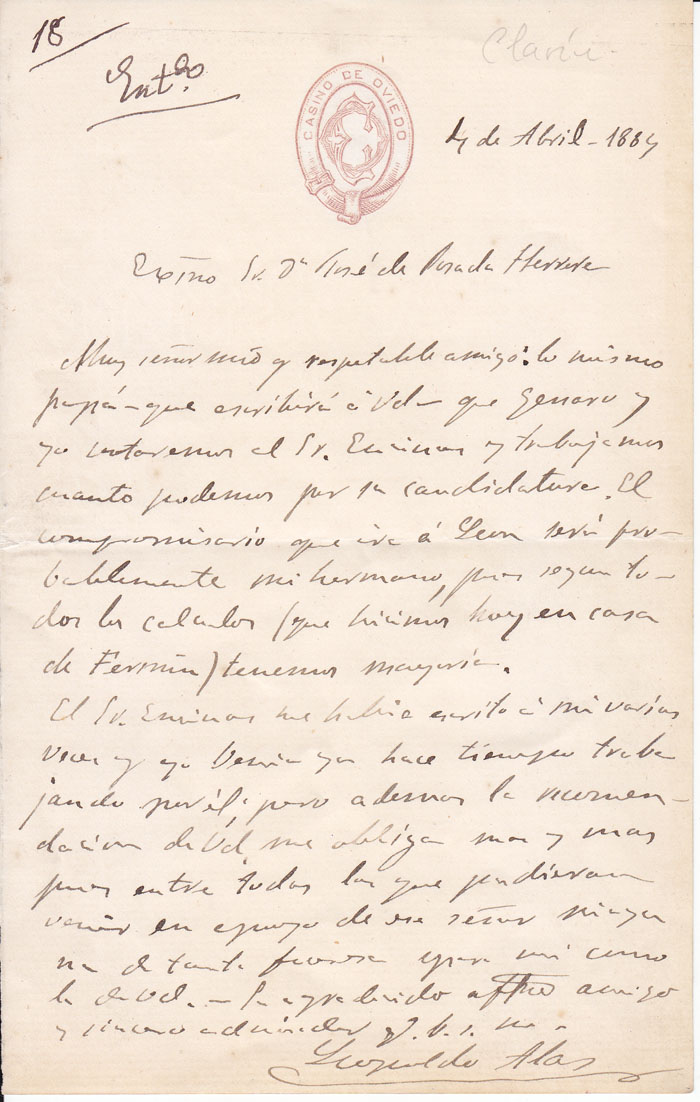 18
Entdo
Clarín.
CASINO DE OVIEDO
4 de Abril - 1884
Exmo Sr. Dn José de Posada Herrera
Muy señor mio y respetable amigo: lo mismo
papá - que escribirá á Vd - que Genaro y
yo votaremos al Sr. Encinas y trabajamos
cuanto podemos por su candidatura. El
compromisario que ira á Leon será pro-
bablemente mi hermano, pues segun to-
dos los calculos (que hicimos hoy en casa
de Fermin) tenemos mayoria.
El Sr. Encinas me habia escrito á mi varias
veces y yo venia ya hace tiempo traba
jando por él; pero ademas la recomen-
dacion de Vd. me obliga mas y mas
pues entre todas las que pudieran
venir en apoyo de ese señor ningu
na de tanta fuerza para mi como
la de Vd. - Su agradecido affmo amigo
y sincero admirador q. b. s. m.
Leopoldo Alas